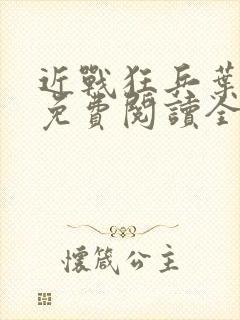 近戰狂兵葉
免費閱讀全
懷箴公主